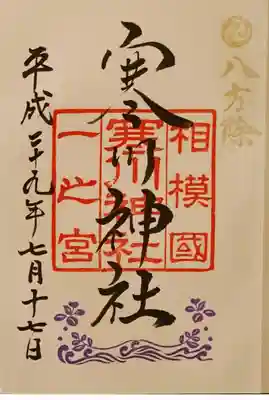 八方除
寒川神社
相模國
寒川神社
一之宮
平成二十九年七月十七日